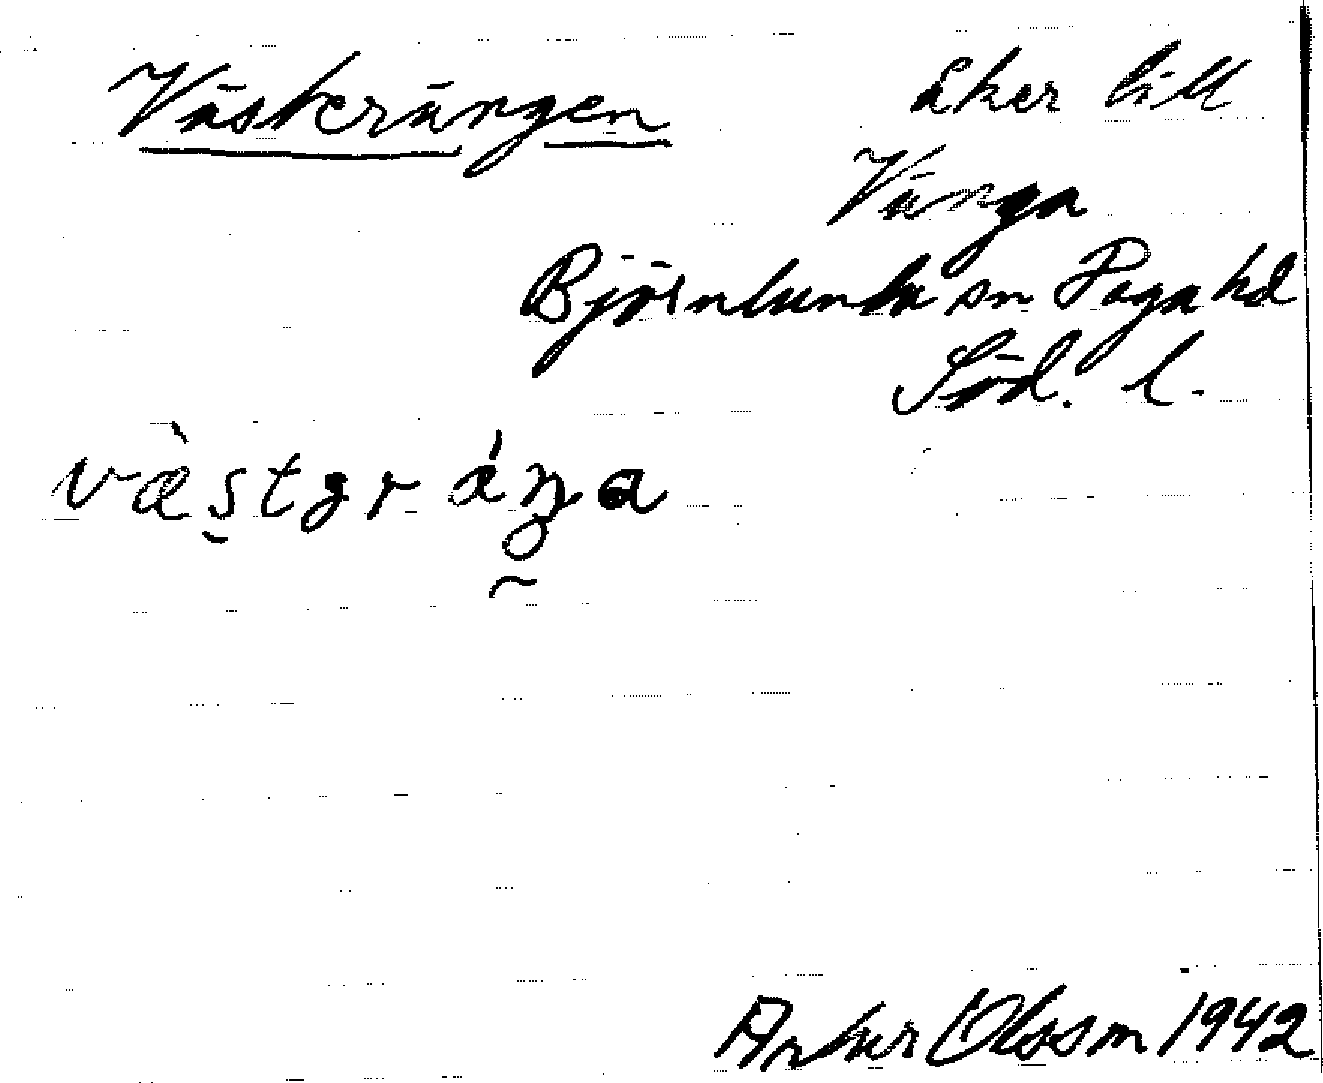 Västerängen
åker till
Vänga
Björnlunda sn Daga hd
Söd. l.
Ankar Olsson 1942